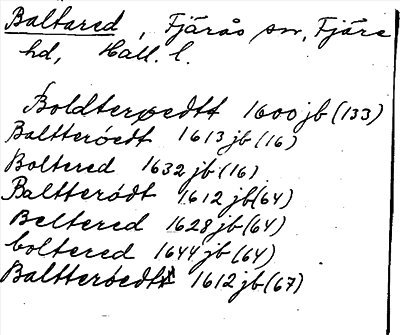 Baltared, Fjärås sn, Fjäre
hd, Hall. l.
Boldterpedtt 1600 jb (133)
Baltteröedt 1613 jb (16)
Boltered 1632 jb (16)
Baltterödt 1612 jb (64)
Beltered 1628 jb (64)
boltered 1644 jb (64)
Baltteröedtt 1612 jb (67)